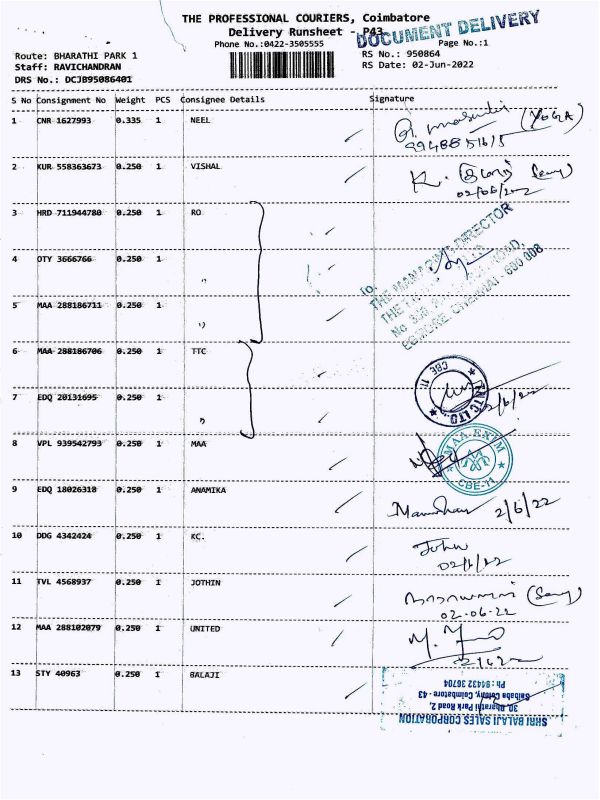 THE PROFESSIONAL COURIERS, Coimbatore
Delivery Runsheet - P43
DOCUMENT DELIVERY
Phone No.:0422-3505555
Page No.:1
Route: BHARATHI PARK 1
RS No.: 950864
Staff: RAVICHANDRAN
RS Date: 02-Jun-2022
DRS No.: DCJB95086401
S No Consignment No Weight PCS Consignee Details Signature
1 CNR 1627993 0.335 1 NEEL
(YOGA)
2 KUR 558363673 0.250 1 VISHAL
K.
02/06/2022
3 HRD 711944780 0.250 1 RO
4 OTY 3666766 0.250 1 "
To,
THE MANAGING DIRECTOR
EGMORE CHENNAI - 600 008
5 MAA 288186711 0.250 1 "
6 MAA 288186706 0.250 1 TTC
CBE 11
7 EDQ 20131695 0.250 1 "
2/6/22
8 VPL 939542793 0.250 1 MAA
MAA EXIM
CBE-11
9 EDQ 18026318 0.250 1 ANAMIKA
2/6/22
10 DDG 4342424 0.250 1 KC.
John
02/6/22
11 TVL 4568937 0.250 1 JOTHIN
02-06-22
12 MAA 288102079 0.250 1 UNITED
13 STY 40963 0.250 1 BALAJI
SHRI BALAJI SALES CORPORATION
30, Bharathi Park Road 2,
Saibaba Colony, Coimbatore - 43
Ph: 94432 36704